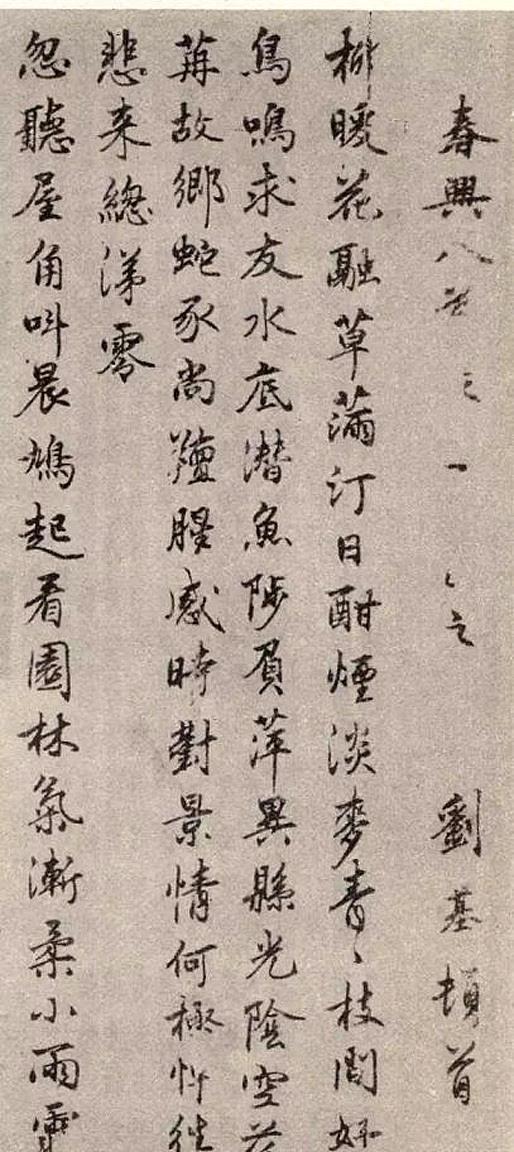 春興八首 劉基頓首
柳暖花融草滿汀日酣煙淡麥青〻枝間好
鳥鳴求友水底潛魚陟負萍異縣光陰空荏
苒故鄉蛇豕尚羶腥感時對景情何極往
悲来總涕零
忽聽屋角叫晨鳩起看園林氣漸柔小雨